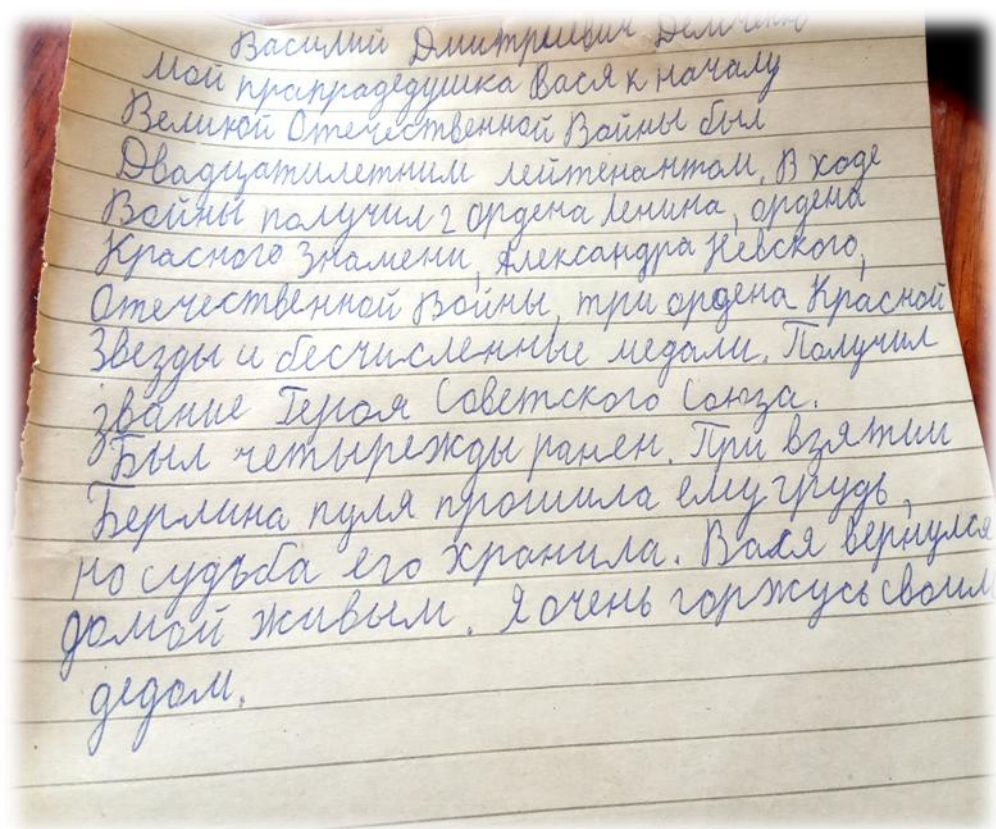 Василий Дмитриевич
Мой прапрадедушка Вася к началу
Великой Отечественной Войны был
Двадцатилетним лейтенантом. В ходе
Войны получил 2 ордена Ленина, ордена
Красного Знамени, Александра Невского,
Отечественной Войны, три ордена Красной
Звезды и бесчисленные медали. Получил
звание Героя Советского Союза.
Был четырежды ранен. При взятии
Берлина пуля прошила ему грудь,
но судьба его хранила. Вася вернулся
домой живым. Я очень горжусь своим
дедом.